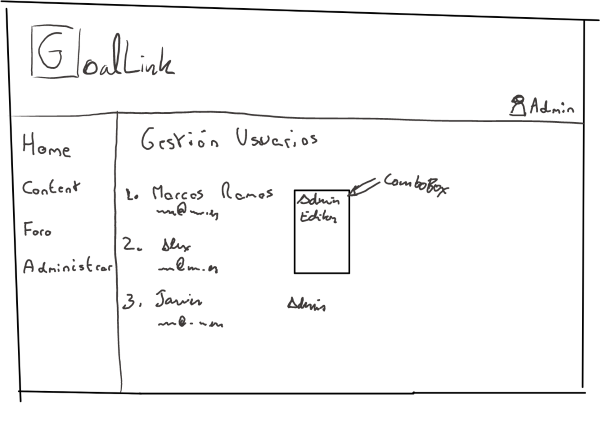 GoalLink
Admin
Home
Content
Foro
Administrar
Gestión Usuarios
1. Marcos Ramos
Admin
Editor
ComboBox
2. Alex
3. Javier
Admin